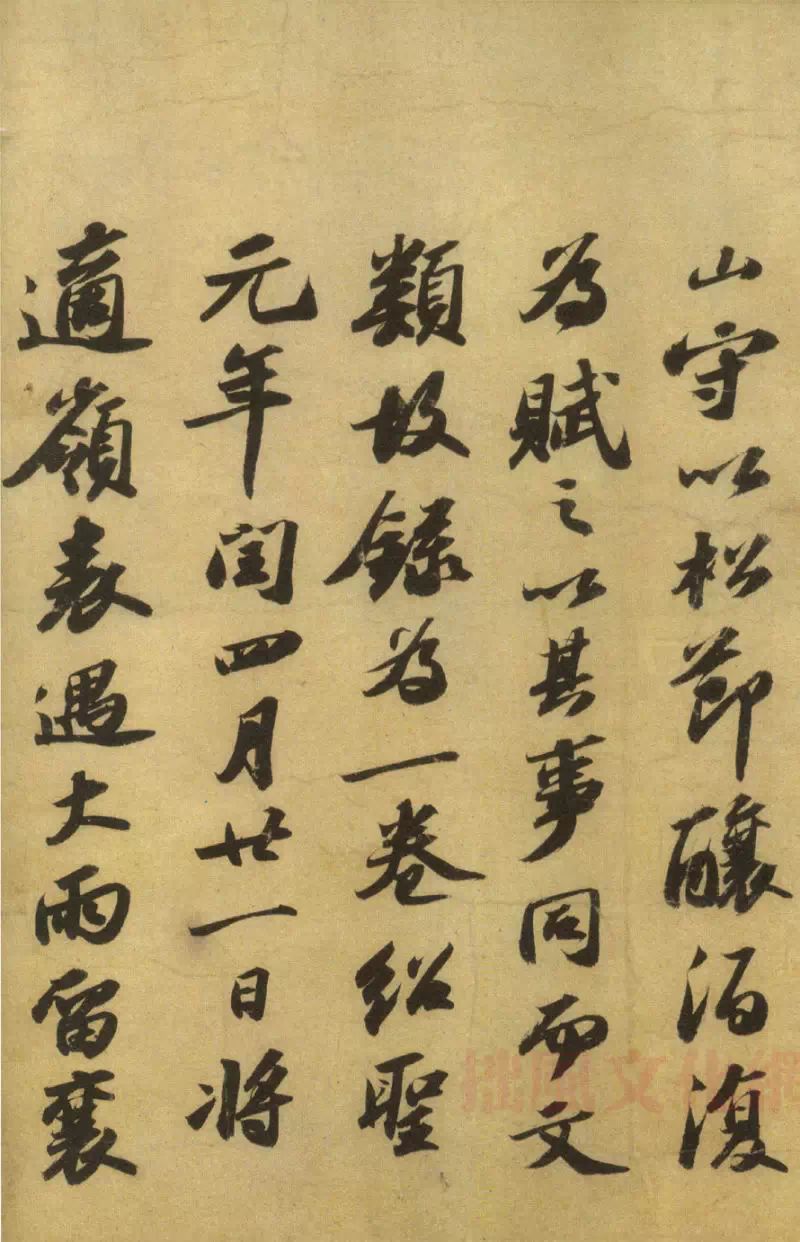 山守以松節釀酒復
為賦之以其事同而文
類故錄為一卷紹聖
元年閏四月廿一日將
適嶺表遇大雨留襄
拙風文化網